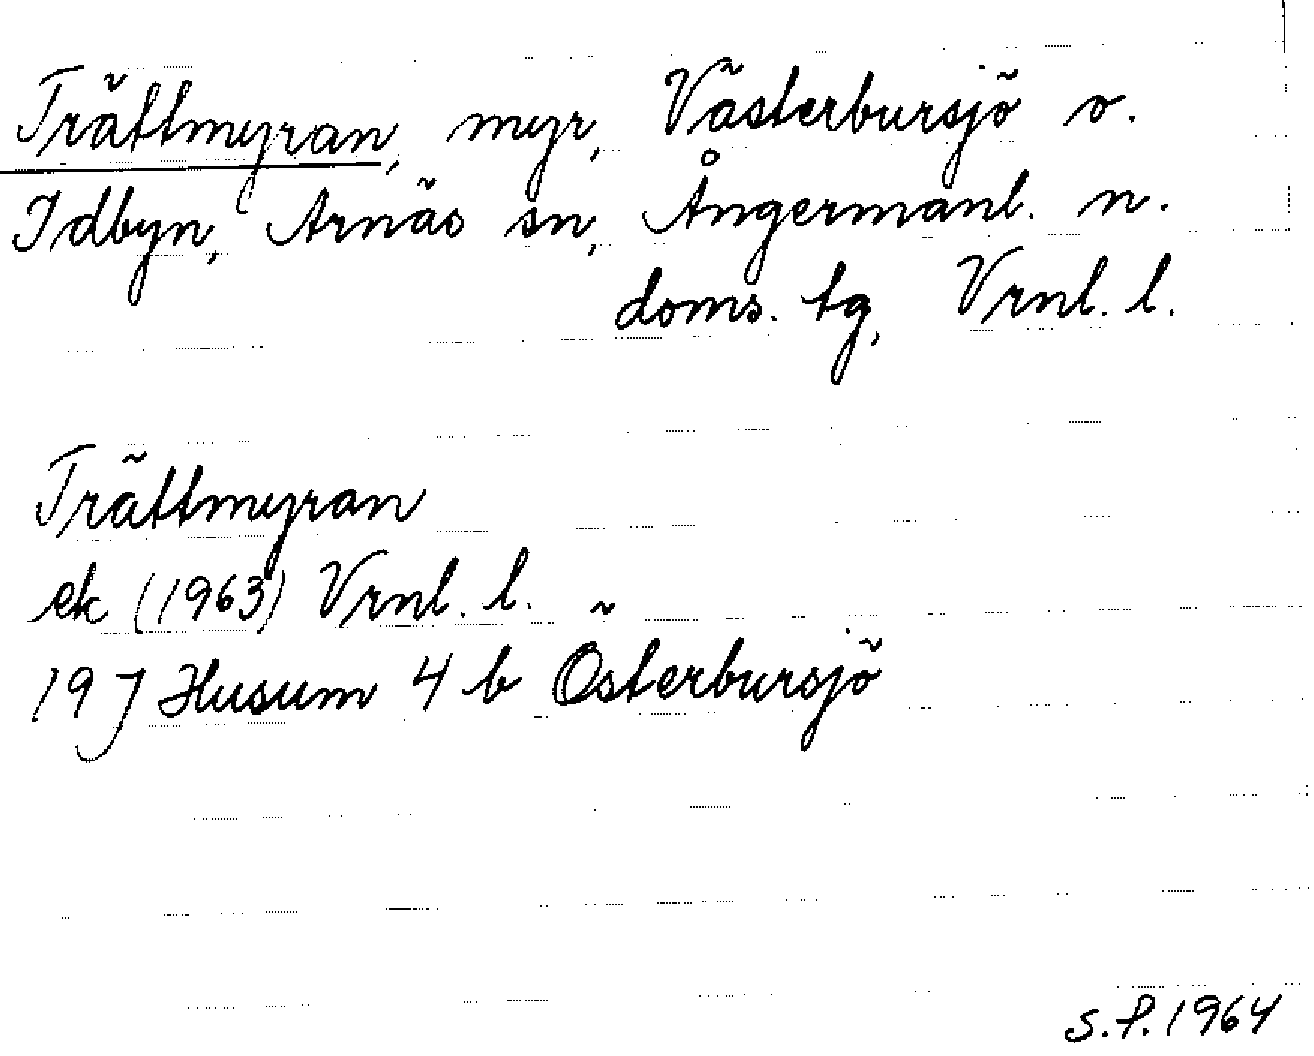 Trättmyran, myr, Västerbursjö o.
Idbyn, Arnäs sn, Ångermanl. n.
doms. tg, Vrnl. l.
Trättmyran
ek (1963) Vrnl. l.
19 J Husum 4 b Österbursjö
S.P. 1964